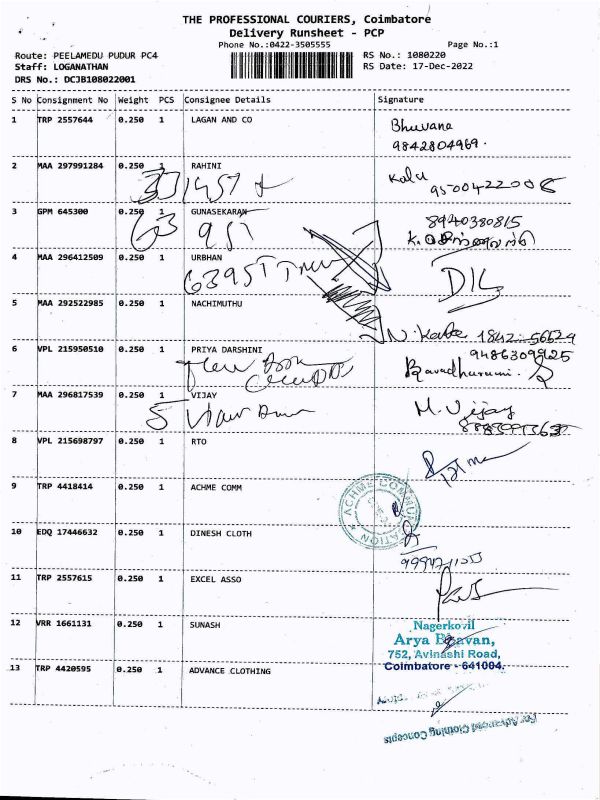 THE PROFESSIONAL COURIERS, Coimbatore
Delivery Runsheet - PCP
Phone No.:0422-3505555
Page No.:1
Route: PEELAMEDU PUDUR PC4
RS No.: 1080220
Staff: LOGANATHAN
RS Date: 17-Dec-2022
DRS No.: DCJB108022001
S No Consignment No Weight PCS Consignee Details Signature
1 TRP 2557644 0.250 1 LAGAN AND CO Bhuvana
9842804969.
2 MAA 297991284 0.250 1 RAHINI Kala
9500422006
3 GPM 645300 0.250 1 GUNASEKARAN 8940380815
63 951
4 MAA 296412509 0.250 1 URBHAN
63951
5 MAA 292522985 0.250 1 NACHIMUTHU
N. Kabe 1842-56624
6 VPL 215950510 0.250 1 PRIYA DARSHINI 9486309925
7 MAA 296817539 0.250 1 VIJAY M. Vijay
8 VPL 215698797 0.250 1 RTO
9 TRP 4418414 0.250 1 ACHME COMM
ACHME COMMUNICATION
10 EDQ 17446632 0.250 1 DINESH CLOTH
11 TRP 2557615 0.250 1 EXCEL ASSO
12 VRR 1661131 0.250 1 SUNASH Nagerkovil
Arya Bhavan,
752, Avinashi Road,
Coimbatore - 641004.
13 TRP 4420595 0.250 1 ADVANCE CLOTHING
For Advanced Clothing Concepts